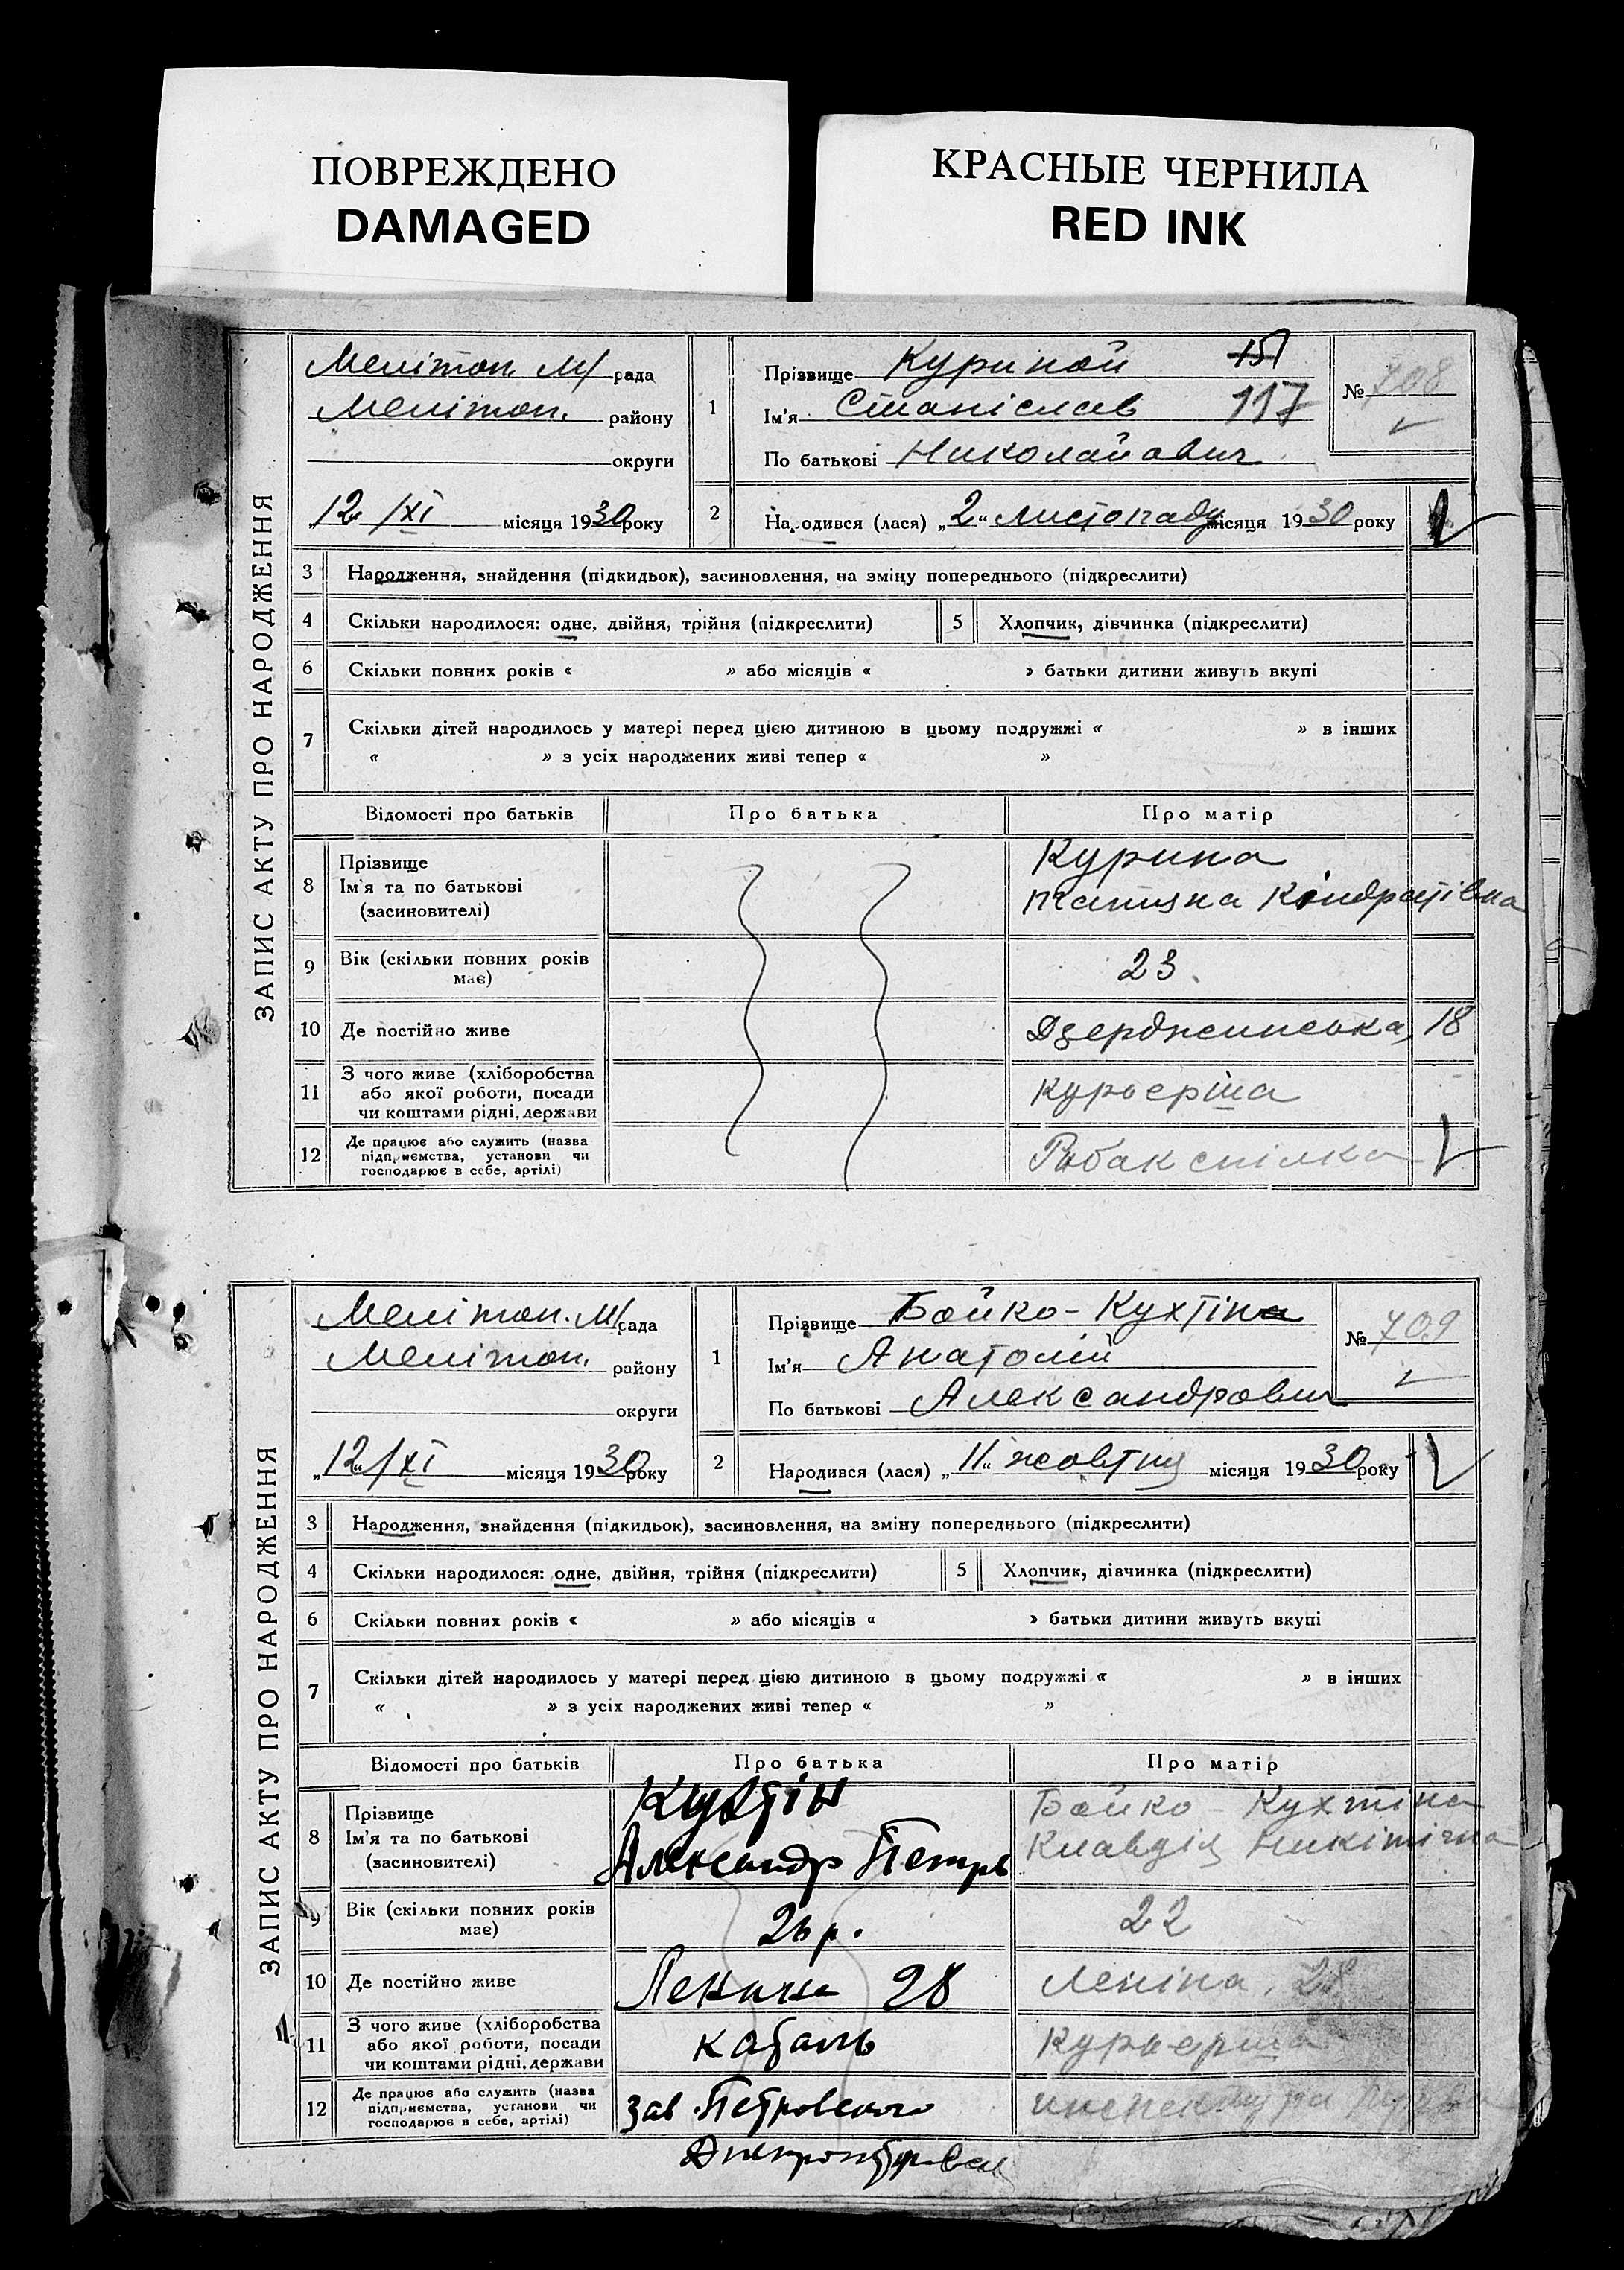 ПОВРЕЖДЕНО
DAMAGED
КРАСНЫЕ ЧЕРНИЛА
RED INK
ЗАПИС АКТУ ПРО НАРОДЖЕННЯ
Мелітоп. М/ рада
Мелітоп. району
округи
„12/XI місяця 1930 року
1
Прізвище Куриной 151
Ім'я Станіслав 117
По батькові Николайович
№ 708
2
Народився (лася) „2“ листопаду місяця 1930 року
3 Народження, знайдення (підкидьок), засиновлення, на зміну попереднього (підкреслити)
4 Скільки народилося: одне, двійня, трійня (підкреслити) 5 Хлопчик, дівчинка (підкреслити)
6 Скільки повних років « » або місяців « » батьки дитини живуть вкупі
7 Скільки дітей народилось у матері перед цією дитиною в цьому подружжі « » в інших
« » з усіх народжених живі тепер « »
Відомості про батьків Про батька Про матір
8 Прізвище
Ім'я та по батькові
(засиновителі)
Курина
Кіндратівна
9 Вік (скільки повних років
має)
23
10 Де постійно живе Дзержинська, 18
11 З чого живе (хліборобства
або якої роботи, посади
чи коштами рідні, держави
курьерша
12 Де працює або служить (назва
підприємства, установи чи
господарює в себе, артілі)
ЗАПИС АКТУ ПРО НАРОДЖЕННЯ
Мелітоп. М/ рада
Мелітоп. району
округи
„12“/XI місяця 1930 року
1
Прізвище Бойко-Кухтіна
Ім'я Анатолій
По батькові Александрович
№ 709
2
Народився (лася) „11“ жовтня місяця 1930 року
3 Народження, знайдення (підкидьок), засиновлення, на зміну попереднього (підкреслити)
4 Скільки народилося: одне, двійня, трійня (підкреслити) 5 Хлопчик, дівчинка (підкреслити)
6 Скільки повних років « » або місяців « » батьки дитини живуть вкупі
7 Скільки дітей народилось у матері перед цією дитиною в цьому подружжі « » в інших
« » з усіх народжених живі тепер « »
Відомості про батьків Про батька Про матір
8 Прізвище
Ім'я та по батькові
(засиновителі)
Кухтін
Александр Петров
Бойко - Кухтіна
Клавдія Никітічна
9 Вік (скільки повних років
має)
26 р.
22
10 Де постійно живе Ленина 28 Леніна, 28
11 З чого живе (хліборобства
або якої роботи, посади
чи коштами рідні, держави
Курьерша
12 Де працює або служить (назва
підприємства, установи чи
господарює в себе, артілі)
зав. Петровского